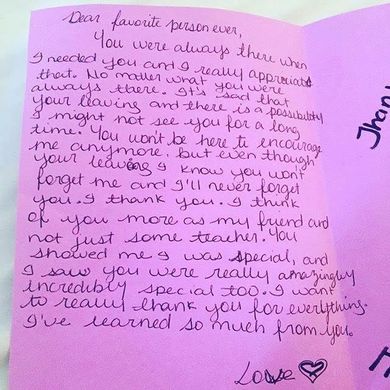 Dear favorite person ever,
You were always there when
I needed you and I really appreciate
that. No matter what you were
always there. It's sad that
your leaving and there is a possibility
I might not see you for a long
time. You won't be here to encourage
me anymore. but even though
your leaving I know you won't
forget me and I'll never forget
you. I thank you. I think
of you more as my friend and
not just some teacher. You
showed me I was special, and
I saw you were really amazingley
incredibly special too. I want
to really thank you for everything.
I've learned so much from you.
Love
Thank